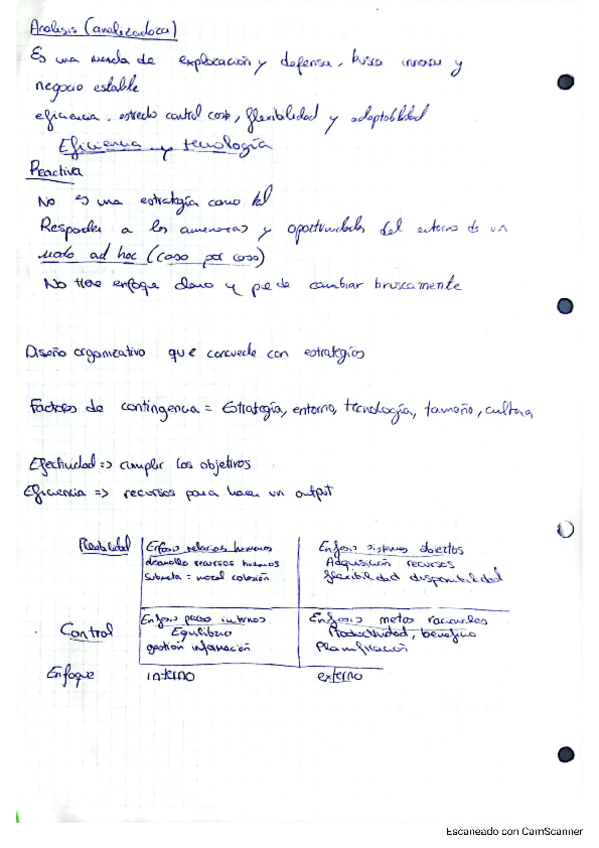 Analisis (analizadora)
Es una mezcla de exploración y defensa, busca innovar y
negocio estable
eficiencia, estrecho control cost, flexibilidad y adaptabilidad
Eficiencia y tecnología
Reactiva
No es una estrategia como tal
Responder a los amenazas y oportunidades del entorno de un
modo ad hoc (caso por caso)
No tiene enfoque claro y puede cambiar bruscamente
Diseño organizativo que concuerde con estrategias
Factores de contingencia = Estrategia, entorno, tecnología, tamaño, cultura
Efectividad => cumplir los objetivos
Eficiencia => recursos para hacer un output
Flexibilidad
Enfoque relaciones humanas
desarrollo recursos humanos
Submeta = moral cohesión
Enfoque sistemas abiertos
Adquisición recursos
flexibilidad disponibilidad
Control
Enfoque proceso internos
Equilibrio
gestión información
Enfoque metas racionales
Productividad, beneficio
Planificación
Enfoque interno externo
Escaneado con CamScanner